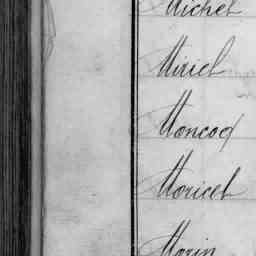 Michel
Miriel
Moncoq
Moricet
Morin